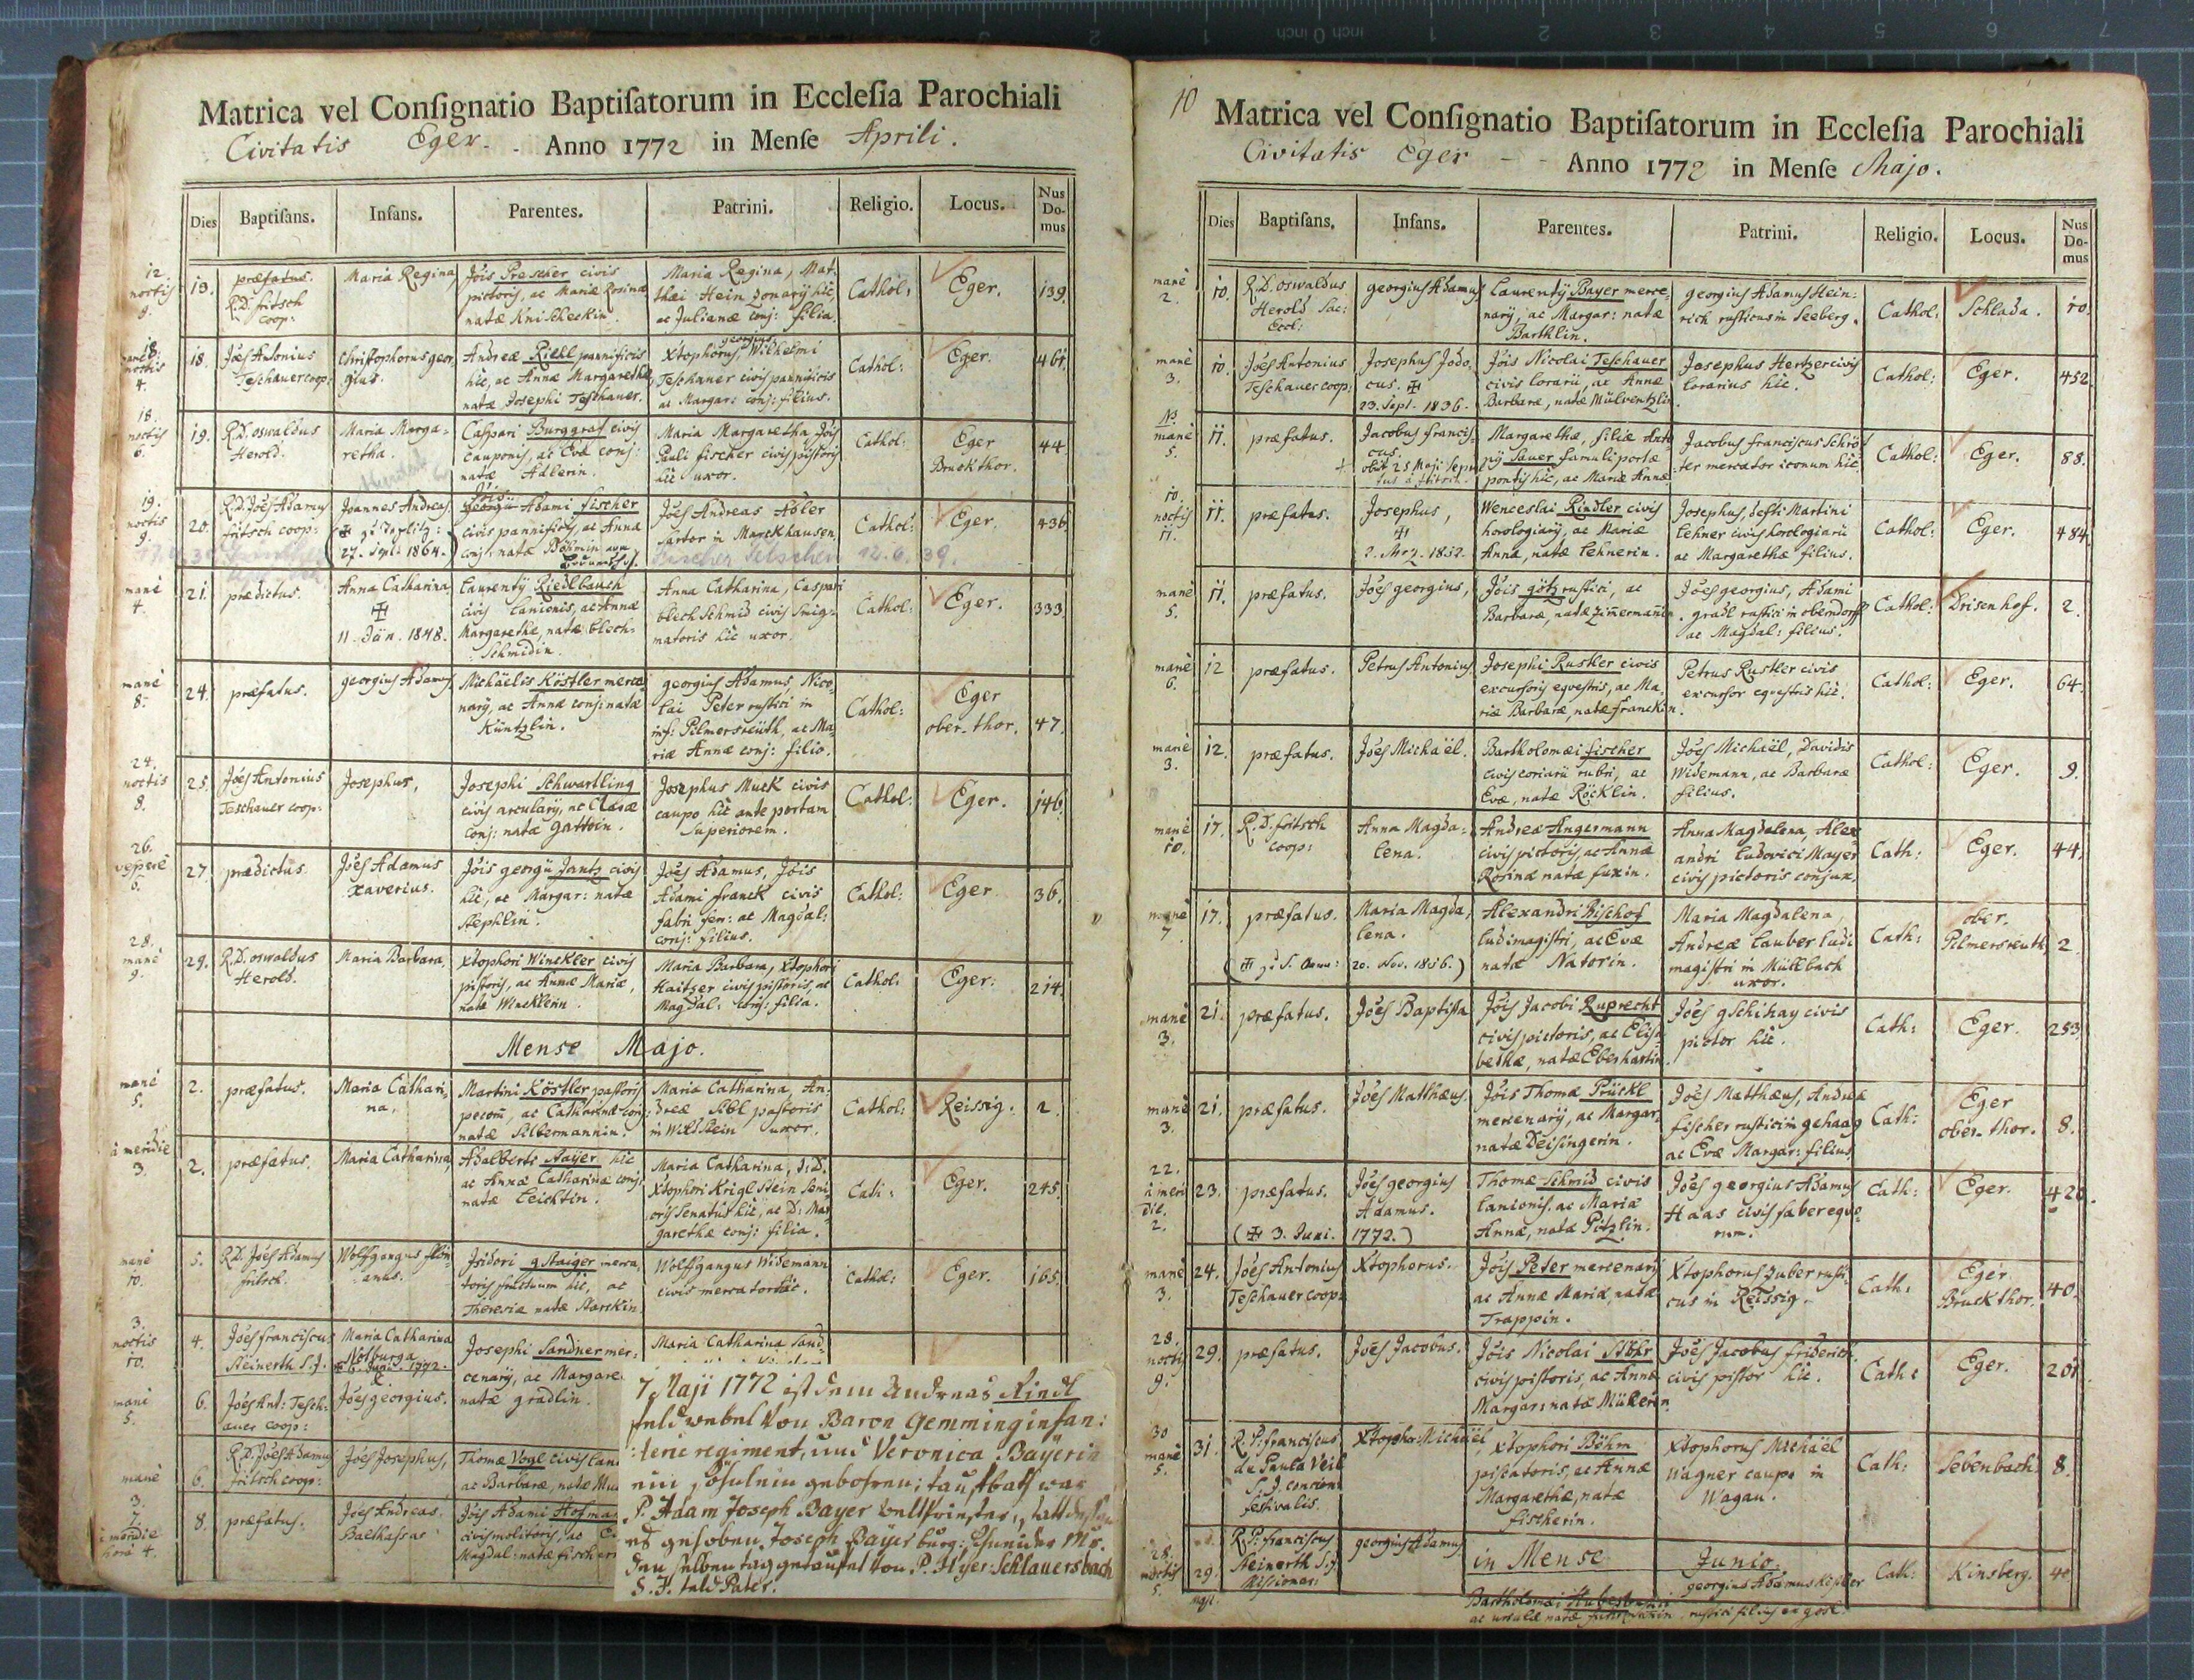 Matrica vel Conſignatio Baptiſatorum in Eccleſia Parochiali
Civitatis Eger. Anno 1772 in Menſe Aprili.
Dies Baptiſans. Infans. Parentes. Patrini. Religio. Locus. Nus Domus
12. noctis 9. 13. præfatus. R.D. fritsch coop: Maria Regina, Jois Prescher civis
pictoris, ac Mariæ Rosinæ natæ Knischeckin. Maria Regina, Mat-
thæi Hein hic, ac Julianæ conj: filia. Cathol: Eger. 139.
18. noctis 4. 18. Joes Antonius Teschauer coop: Christophorus geor-
gius. Andreæ Riehl pannificis
hic, ac Annæ Margarethæ,
natæ Josephi Teschauer. Xtophorus georgius, Wilhelmi
Teschauer civis pannificis
ac Margar: conj: filius. Cathol: Eger. 461.
18. noctis 6. 19. R.D. oswaldus Herold. Maria Marga-
retha. Caspari Burggraf civis
cauponis, ac Evæ conj:
natæ Adlerin. Maria Margaretha Jois
Pauli fischer civis pistoris
hic uxor. Cathol: Eger Bruckthor. 44.
19. noctis 9. 20. R.D. Joes Adamus fritsch coop: Joannes Andreas.
27. Sept. 1864. Jois Adami fischer
civis pannificis, ac Anna
conj: natæ Böhmin Joes Andreas Adler
sartor in Marckhausen. Cathol: Eger. 436.
mane 4. 21. prædictus. Anna Catharina,
11. Jän. 1848. Laurentij Riedlbauch
civis lanionis, ac Annæ
Margarethe, natæ blech-
schmidin. Anna Catharina, Caspari
blechschmid civis smig-
matoris hic uxor. Cathol: Eger. 333.
mane 8. 24. præfatus. georgius Adamus, Michäelis Köstler merce-
narij, ac Annæ conj: natæ
Küntzlin. georgius Adamus, Nico-
lai Peter rustici in
inf: Pilmersreüth, ac Ma-
riæ Annæ conj: filio. Cathol: Eger ober-thor. 47.
24. noctis 8. 25. Joes Antonius Teschauer coop: Josephus, Josephi Schwartling
civis arcularij, ac Claræ
conj: natæ Gattoin. Josephus Muck civis
caupo hic ante portam
superiorem. Cathol: Eger. 146.
26. vespere 6. 27. prædictus. Joes Adamus
xaverius. Jois georgii Jantz civis
hic, ac Margar: natæ
Stephlin. Joes Adamus, Jois
Adami franck civis
fabri fer: ac Magdal:
conj: filius. Cathol: Eger. 36.
28. mane 9. 29. R.D. oswaldus Herold. Maria Barbara, Xtophori Winckler civis
pistoris, ac Annæ Mariæ,
natæ Wincklerin. Maria Barbara, Xtophori
Haitzer civis pistoris, ac
Magdal: conj: filia. Cathol: Eger. 214.
Mense Majo.
mane 5. 2. præfatus. Maria Cathari-
na, Martini Köstler pastoris
pecor, ac Catharinæ conj:
natæ Silbermannin. Maria Catharina, An-
dreæ Sibl pastoris
in Wildstein uxor. Cathol: Reissig. 2.
a meridie 3. 2. præfatus. Maria Catharina, Adalberti Aayer hic
ac Annæ Catharinæ conj:
natæ Leichtin. Maria Catharina, D.D.
Xtophori Kriglstein seni-
oris senatus hic, ac D: Mar-
garethæ conj: filia. Cath: Eger. 245.
mane 10. 5. R.D. Joes Adamus fritsch. Wolffgangus flori-
anus. Isidori gstaiger merca-
toris hic, ac
Theresiæ natæ Starckin Wolffgangus Widemann
civis mercator hic. Cathol: Eger. 165.
3. noctis 10. 4. Joes franciscus Steinerth S.J. Maria Catharina
Notburga
6. Juni 1772. Josephi Sandner mer-
cenarij, ac Margare
natæ gradlin. Maria Catharina Sand
mane 5. 6. Joes Ant: Tesch-
auer coop: Joes georgius.
mane 3. 6. R.D. Joes Adamus fritsch coop: Joes Josephus, Thomæ Vogl civis lani
ac Barbaræ, natæ Mu
7. a meridie hora 4. 8. præfatus. Joes Andreas
Balthassar Jois Adami Hofma
civis molitoris, ac
Magdal: natæ fischeri
7 Maji 1772 ist dem Andreas Riedl
feldwebel von Baron Gemming infan-
terie regiment, und Veronica Bayerin
ein söhnlein gebohren; taufbath war
P. Adam Joseph Bayer weltpriester, statt dessen
es gehoben Joseph Bayer burg: M's.
den selben tag getaufet von P. Hyer: Schlauersbach
S.J. feld Pater.
10
Matrica vel Conſignatio Baptiſatorum in Eccleſia Parochiali
Civitatis Eger Anno 1772 in Menſe Majo.
Dies Baptiſans. Infans. Parentes. Patrini. Religio. Locus. Nus Domus
mane 2. 10. R.D. oswaldus Herold Sac: Eccl: georgius Adamus Laurentij Bayer merce-
narij, ac Margar: natæ
Barthlin. georgius Adamus Hein-
rich rusticus in Seeberg. Cathol: Schlada. 10.
mane 3. 10. Joes Antonius Teschauer coop: Josephus Jodo-
cus.
23. Sept. 1836. Jois Nicolai Teschauer
civis lorarii, ac Annæ
Barbaræ, natæ Mülventzlin. Josephus Hertzer civis
lorarius hic. Cathol: Eger. 452.
mane 5. 11. præfatus. Jacobus francis-
cus.
obiit 25 Maji Margarethæ, filiæ Anto-
nij Sauer famuli portæ
pontis hic, ac Mariæ Annæ Jacobus franciscus Schrö-
ter mercator iconum hic. Cathol: Eger. 88.
10 noctis 11. 11. præfatus. Josephus,
1832. Wenceslai Rindler civis
horologiarij, ac Mariæ
Annæ, natæ Lehnerin. Josephus, defti Martini
Lehner civis horologiarii
ac Margarethæ filius. Cathol: Eger. 484.
mane 5. 11. præfatus. Joes georgius, Jois götz rustici, ac
Barbaræ, natæ Zimmermannin. Joes georgius, Adami
gradl rustici in oberndorff
ac Magdal: filius. Cathol: Drisenhof. 2.
mane 6. 12 præfatus. Petrus Antonius Josephi Rustler civis
excursoris equestris, ac Ma-
riæ Barbaræ, natæ franckin. Petrus Rustler civis
excursor equestris hic. Cathol: Eger. 64.
mane 3. 12. præfatus. Joes Michäel. Bartholomæi fischer
civis coriarii rubri, ac
Evæ, natæ Röcklin. Joes Michäel, Davidis
Widemann, ac Barbaræ
filius. Cathol: Eger. 9.
mane 10. 17. R.D. fritsch coop: Anna Magda-
lena. Andreæ Angermann
civis pictoris, ac Annæ
Rosinæ natæ fuxin. Anna Magdalena Alex-
andri Ludovici Mayer
civis pictoris conjux. Cath: Eger. 44.
mane 7 17. præfatus. Maria Magda-
lena.
20. Nov. 1856.) Alexandri Bischof
ludimagistri, ac Evæ
natæ Natorin. Maria Magdalena,
Andreæ Lauber ludi
magistri in Mülbach
uxor. Cath: ober. Pilmersreuth. 2.
mane 3. 21. præfatus. Joes Baptista Jois Jacobi Ruprecht
civis pictoris, ac Elisa-
bethæ, natæ Eberhartin. Joes gschihay civis
pictor hic. Cath: Eger. 253.
mane 3. 21. præfatus. Joes Matthæus. Jois Thomæ Prückl
mercenarij, ac Margar:
natæ Deisingerin. Joes Matthæus, Andreæ
fischer rustici in gehaag
ac Evæ Margar: filius Cath: Eger ober-thor. 8.
22. a meridie. 2. 23. præfatus. Joes georgius
Adamus.
(3. Juni. 1772.) Thomæ Schmid civis
lanionis, ac Mariæ
Annæ, natæ Pötzlin. Joes georgius Adamus
Haas civis faber equo-
rum. Cath: Eger. 420.
mane 3. 24. Joes Antonius Teschauer coop: Xtophorus. Jois Peter mercenarij
ac Annæ Mariæ, natæ
Trappin. Xtophorus Zuber rusti-
cus in Reissig. Cath: Eger Bruckthor. 40.
28. noctis 9. 29. præfatus. Joes Jacobus. Jois Nicolai Stöhr
civis pistoris, ac Annæ
Margar: natæ Mükerin. Joes Jacobus friderich
civis pistor hic. Cath: Eger. 201.
30 mane 5. 31. R.P. franciscus de Paula Veil S.J. concion: festivalis. Xtophor Michäel, Xtophori Böhm
piscatoris, ac Annæ
Margarethæ, natæ
fischerin. Xtophorus Michäel
Wagner caupo in
Wagau. Cath: Sebenbach. 8.
in Mense Junio.
28. noctis 5. 29. R.P. franciscus Steinerth S.J. Missionar: georgius Adamus Bartholomæi
ac Ursulæ natæ georgius Adamus
rustici filius Cath: Kinsberg. 40